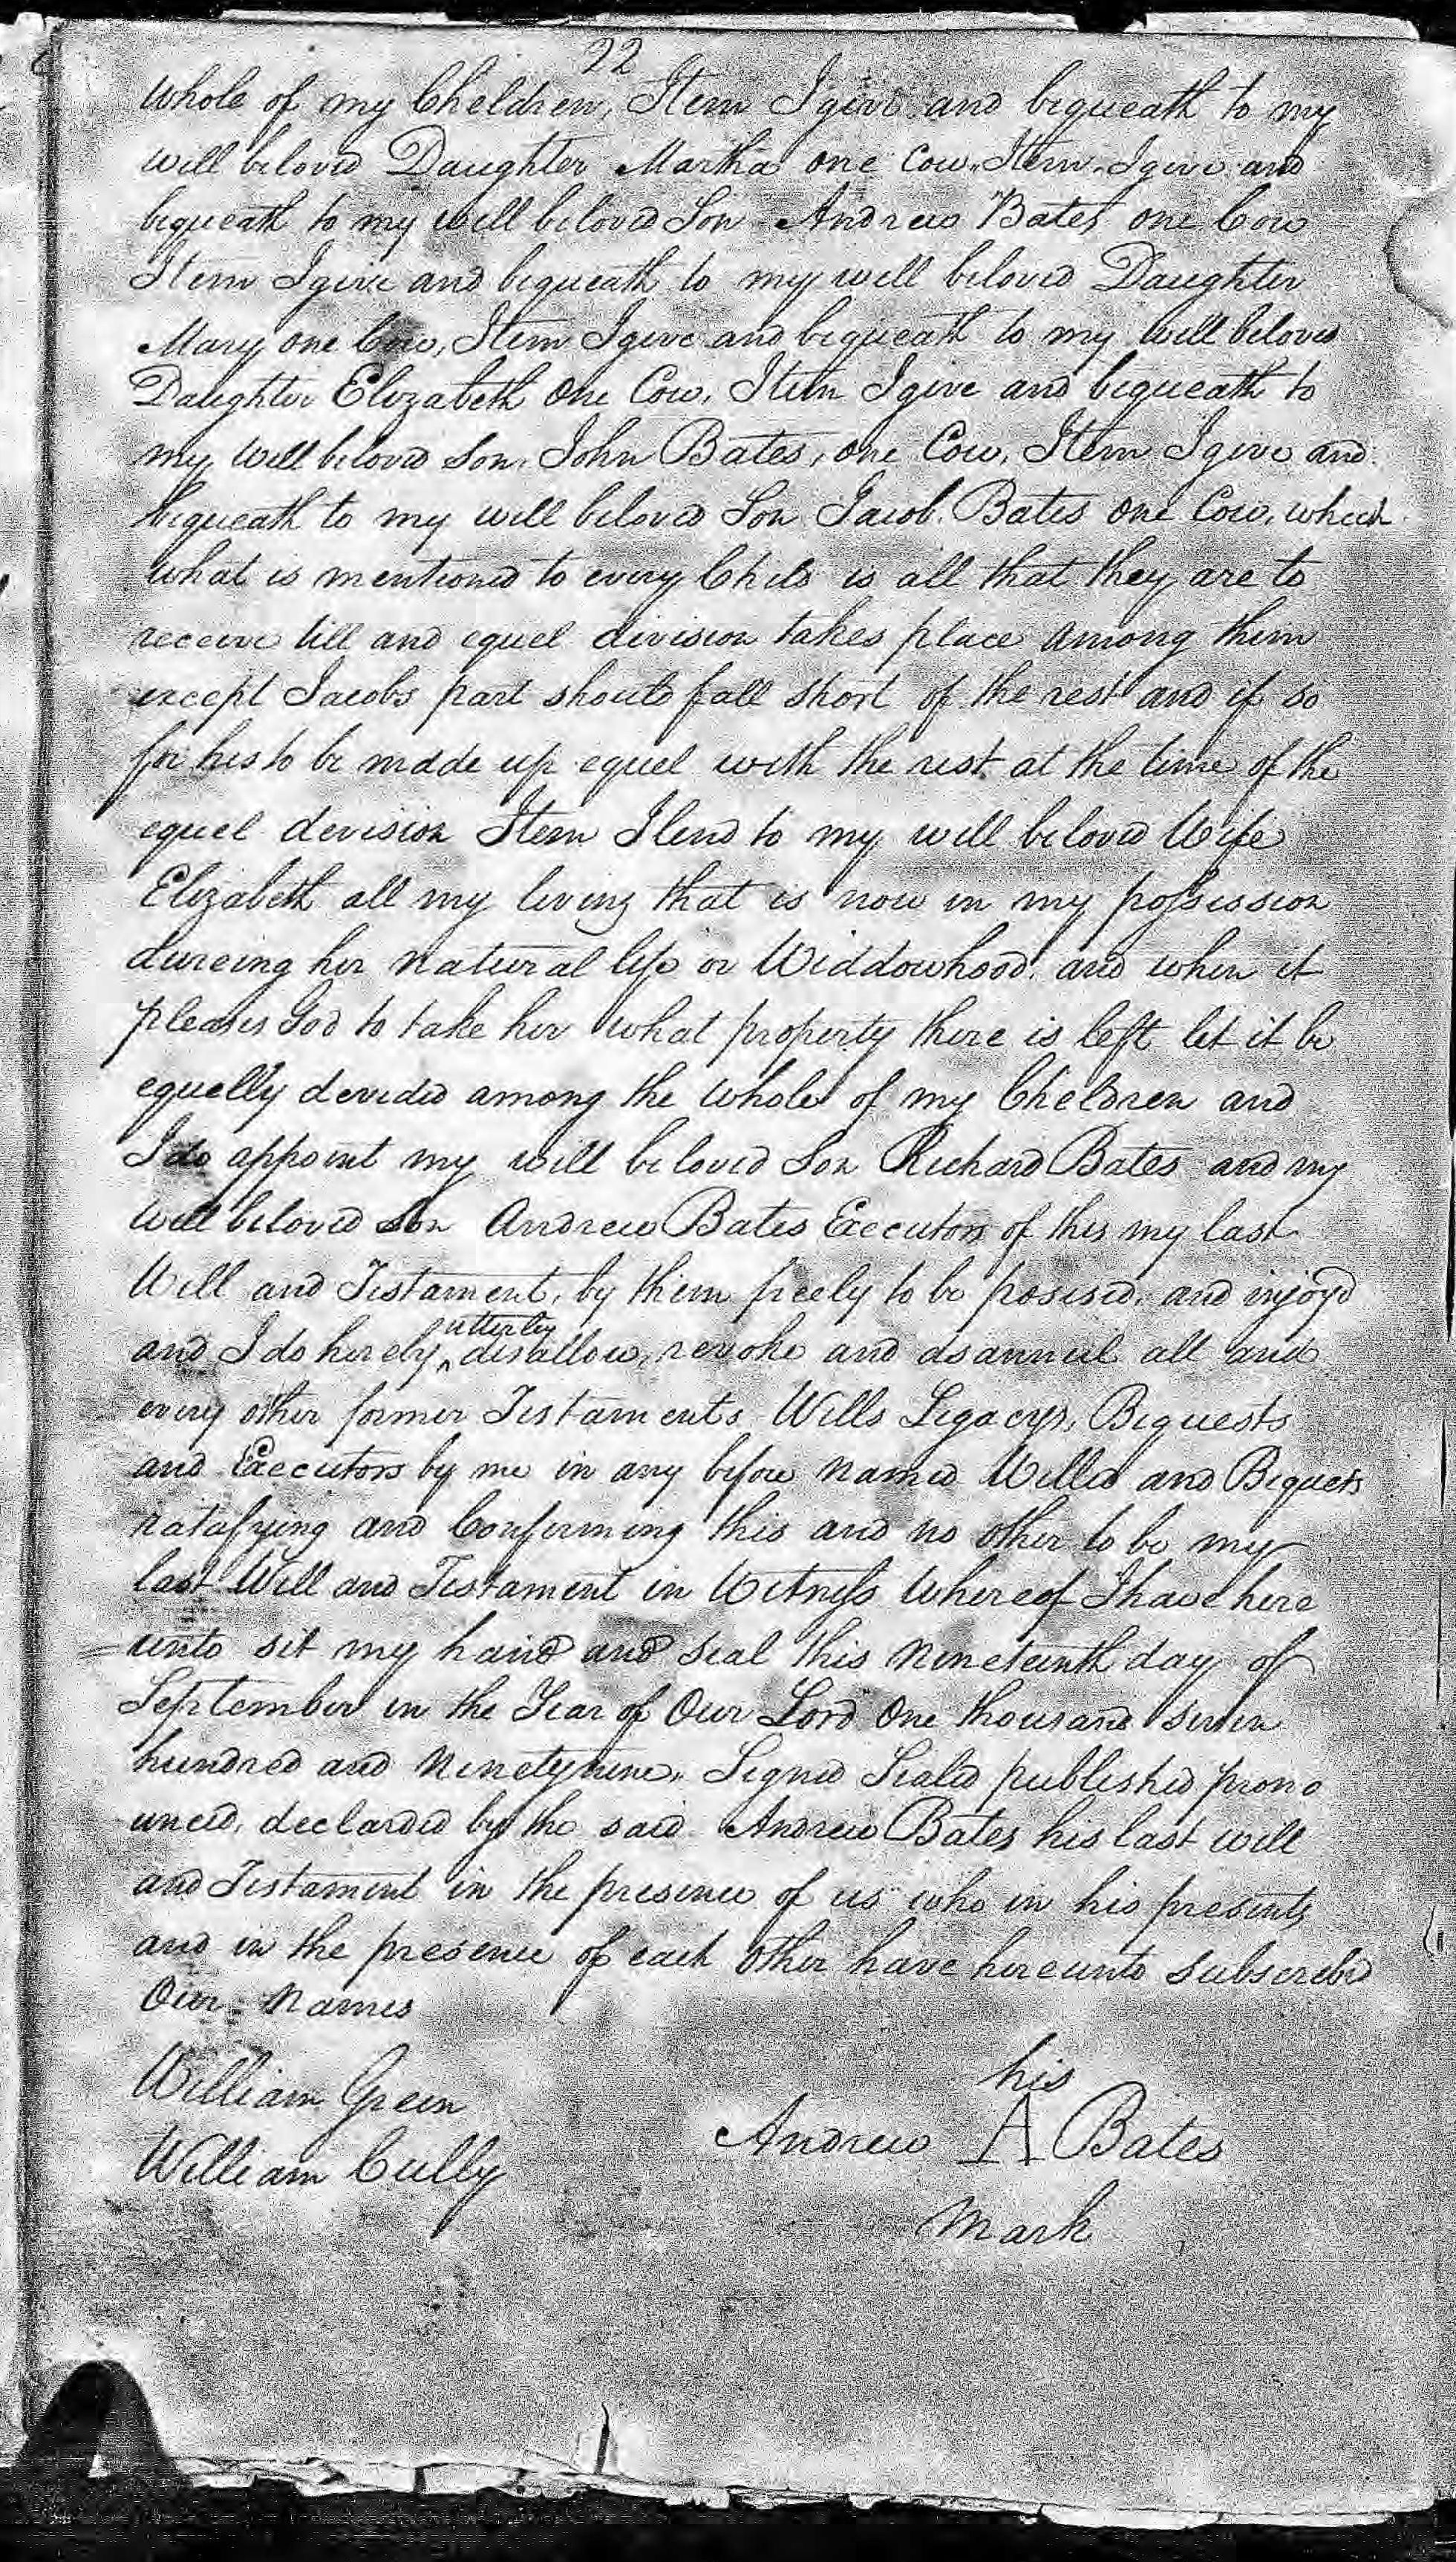 22
Whole of my Cheldren, Item I give and bequeath to my
will beloved Daughter Martha one Cow, Item, I give and
bequeath to my will beloved Son Andrew Bates one Cow
Item I give and bequeath to my will beloved Daughter
Mary one Cow, Item I give and bequeath to my will beloved
Daughter Elizabeth One Cow, Item I give and bequeath to
my will beloved Son, John Bates, one Cow, Item I give and
bequeath to my will beloved Son Jacob Bates One Cow, which
what is mentioned to every Child is all that they are to
receive till and equel division takes place among them
except Jacobs part should fall short of the rest and if so
for his to be made up equel with the rest at the time of the
equel devision Item I lend to my will beloved Wife
Elizabeth all my living that is now in my possession
dureing her natural life or Widdowhood, and when it
pleases God to take her what property there is left let it be
equelly devided among the whole of my Cheldren and
I do appoint my will beloved Son Richard Bates and my
will beloved Son Andrew Bates Executors of this my last
Will and Testament, by them freely to be posised, and injoyd
utterly
and I do herely ^ disallow, revoke and dsannul all and
every other former Testaments Wills Legacys, Bequests
and Executors by me in any before named Willed and Bequets
ratafying and Confirming this and no other to be my
last Will and Testament in Witness Whereof I have here
unto set my hand and seal this nineteenth day of
September in the Year of Our Lord One thousand seven
hundred and Ninetynine, Signed Sealed published prono
unced, declared by the said Andrew Bates his last will
and Testament in the presence of us who in his presents
and in the presence of each other have hereunto subscrebd
Our Names
his
William Green
Andrew A Bates
William Cully
Mark